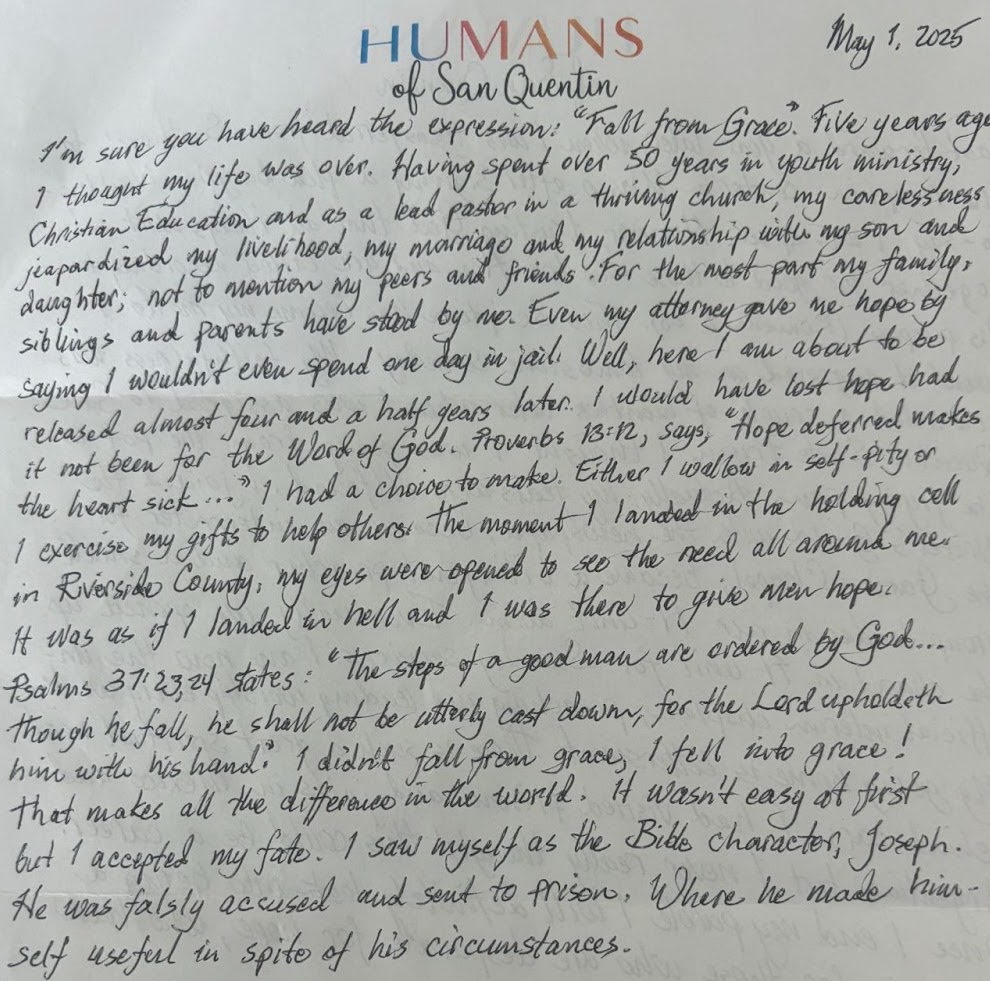 HUMANS
of San Quentin
May 1, 2025
I'm sure you have heard the expression: "Fall from Grace". Five years ago
I thought my life was over. Having spent over 30 years in youth ministry,
Christian Education and as a lead pastor in a thriving church, my carelessness
jeapardized my livelihood, my marriage and my relationship with my son and
daughter; not to mention my peers and friends. For the most part my family,
siblings and parents have stood by me. Even my attorney gave me hope by
saying I wouldn't even spend one day in jail. Well, here I am about to be
released almost four and a half years later. I would have lost hope had
it not been for the Word of God. Proverbs 13:12, says, "Hope deferred makes
the heart sick..." I had a choice to make. Either I wallow in self-pity or
I exercise my gifts to help others. The moment I landed in the holding cell
in Riverside County, my eyes were opened to see the need all around me.
It was as if I landed in hell and I was there to give men hope.
Psalms 37:23,24 states: "The steps of a good man are ordered by God...
though he fall, he shall not be utterly cast down, for the Lord upholdeth
him with his hand." I didn't fall from grace, I fell into grace!
That makes all the difference in the world. It wasn't easy at first
but I accepted my fate. I saw myself as the Bible character, Joseph.
He was falsly accused and sent to prison. Where he made him-
self useful in spite of his circumstances.